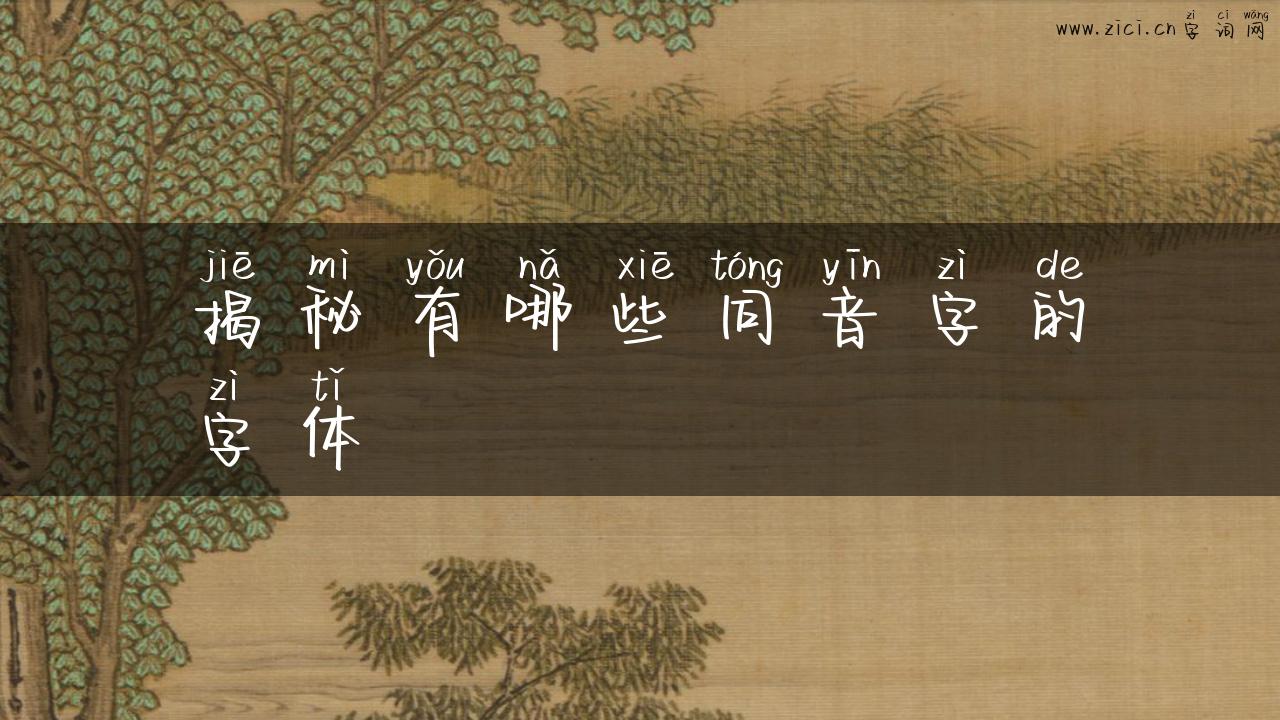 www.zici.cn字词网
zì cí wǎng
jiē mì yǒu nǎ xiē tóng yīn zì de
揭秘有哪些同音字的
zì tǐ
字体